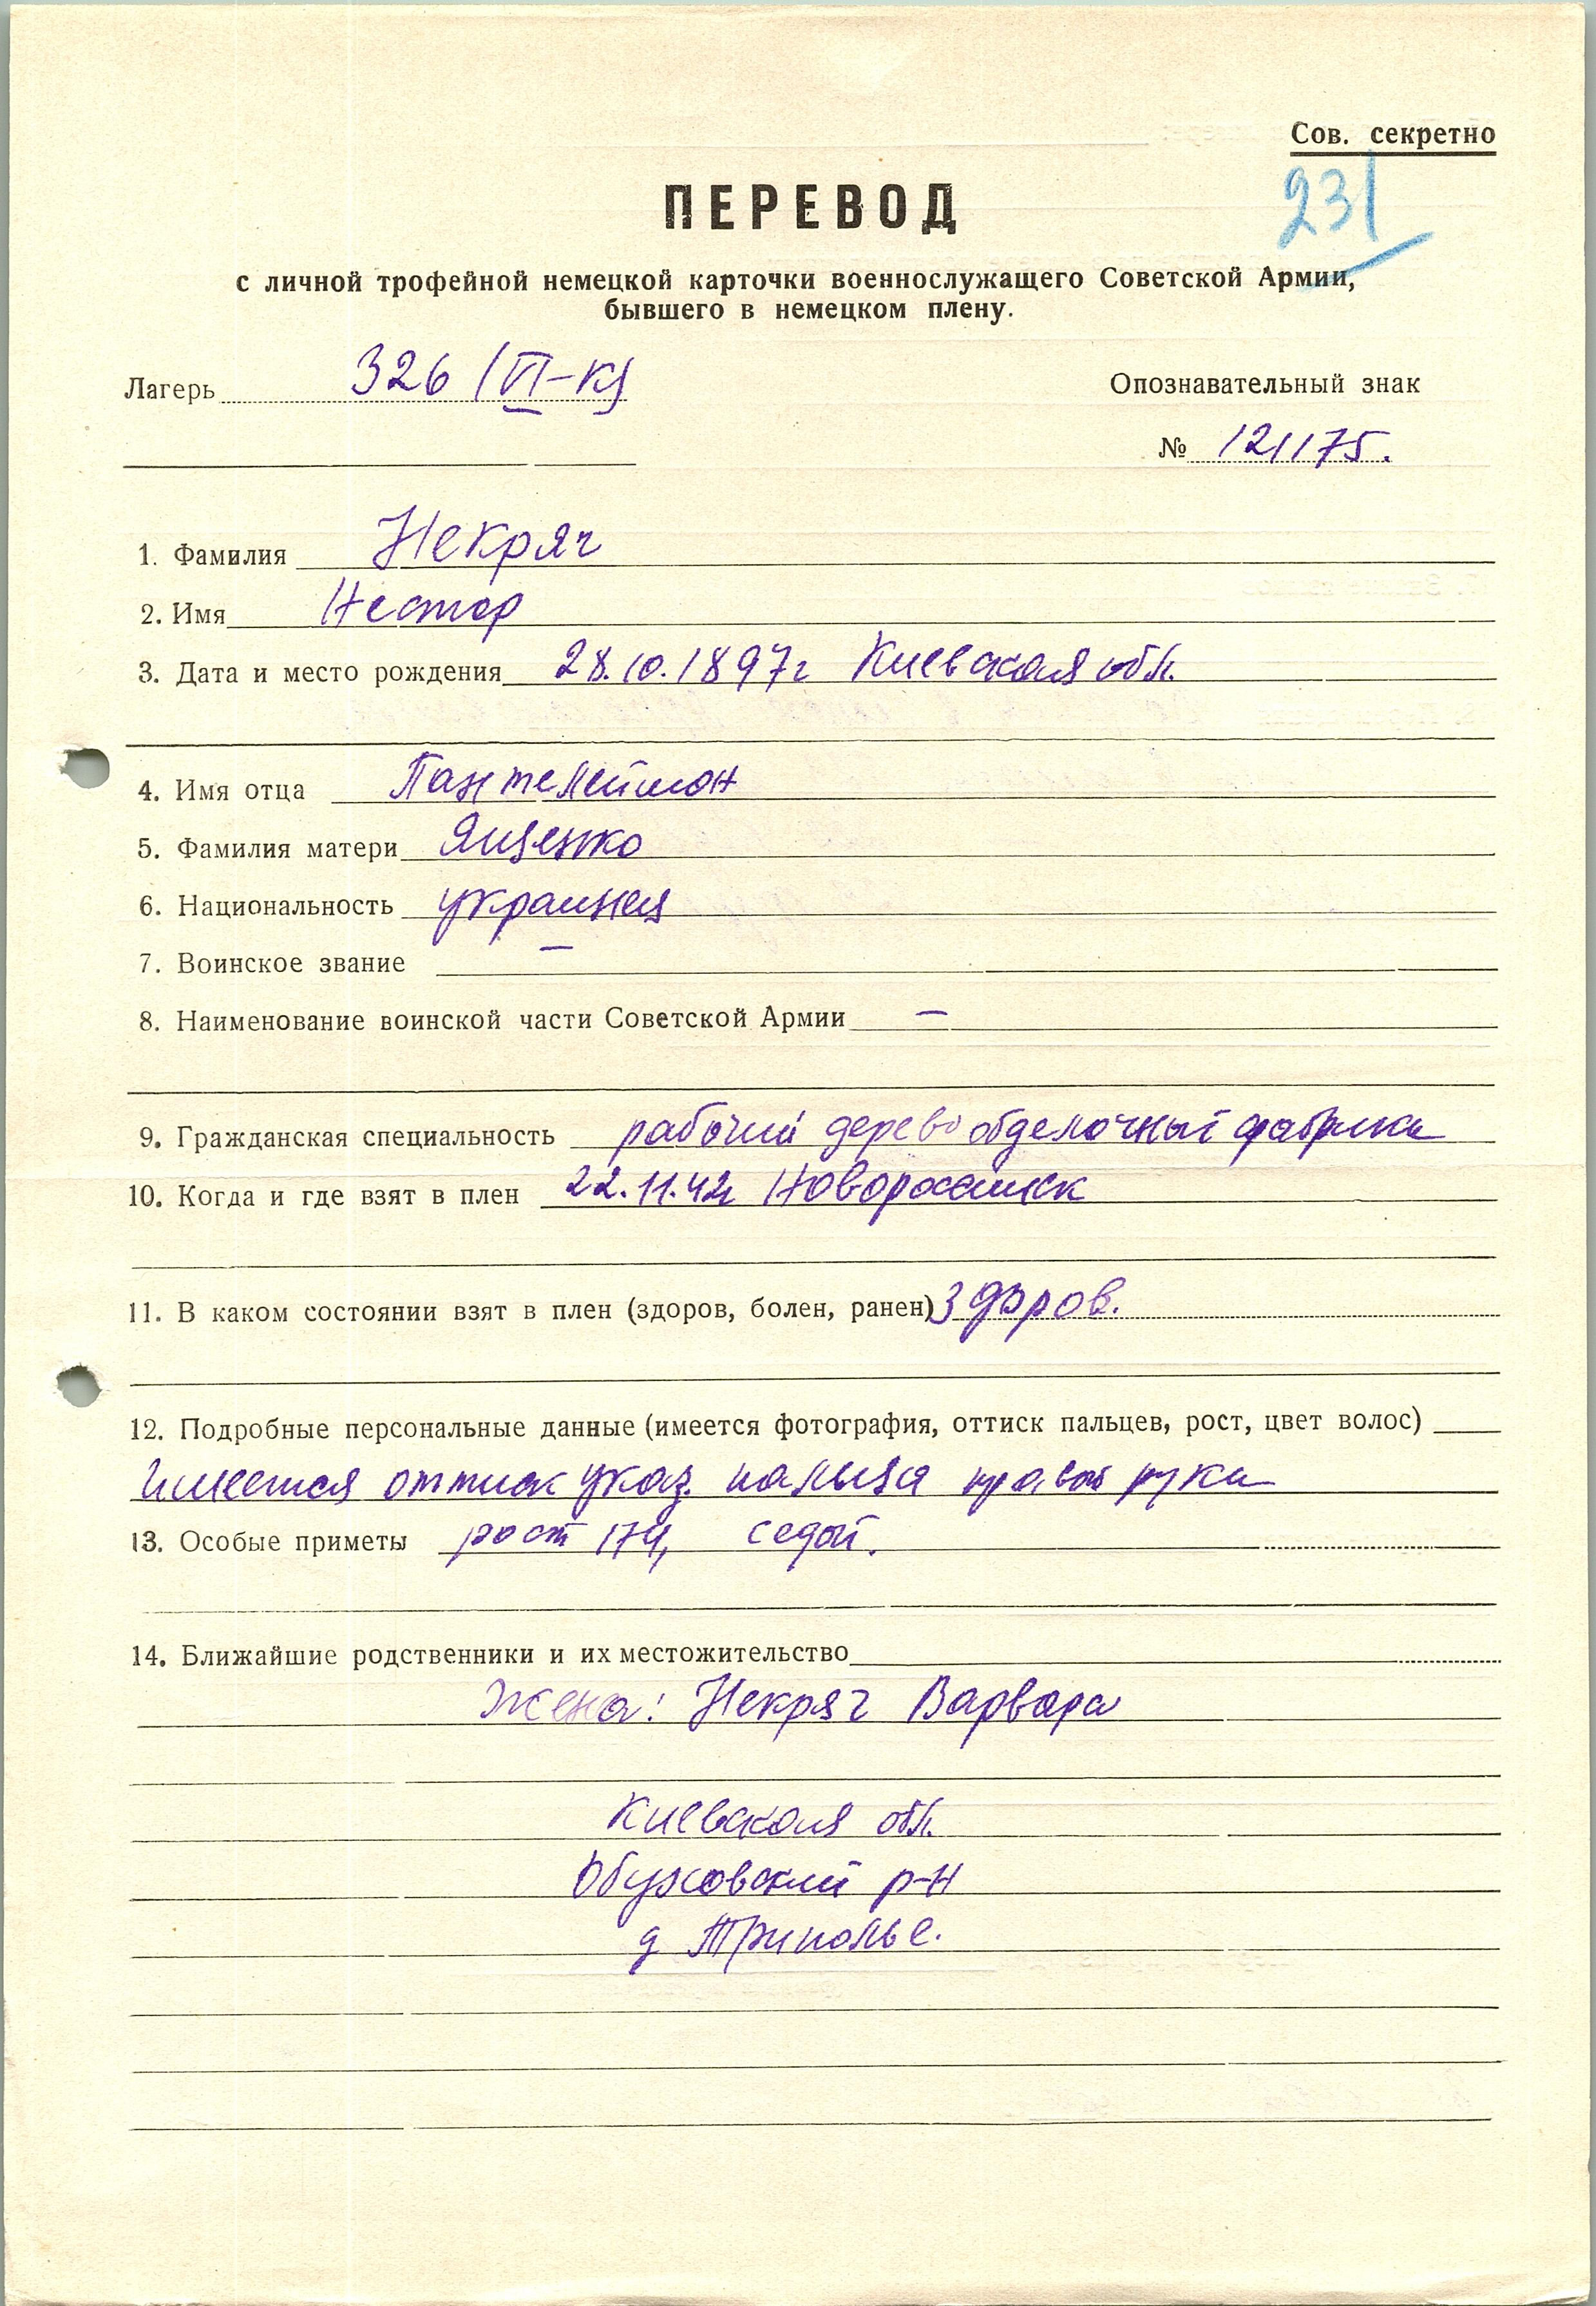 Сов. секретно
231
ПЕРЕВОД
с личной трофейной немецкой карточки военнослужащего Советской Армии,
бывшего в немецком плену.
Лагерь 326 (VI-К)
Опознавательный знак
№ 121175.
1. Фамилия Некряч
2. Имя Нестор
3. Дата и место рождения 28.10.1897г Киевская обл.
4. Имя отца Пантелеймон
5. Фамилия матери Ященко
6. Национальность украинец
7. Воинское звание —
8. Наименование воинской части Советской Армии —
9. Гражданская специальность рабочий деревообделочный фабрики
10. Когда и где взят в плен 22.11.42г Новороссийск
11. В каком состоянии взят в плен (здоров, болен, ранен) Здоров.
12. Подробные персональные данные (имеется фотография, оттиск пальцев, рост, цвет волос)
Имеется оттиск указ. пальца правой руки
13. Особые приметы рост 174, седой.
14. Ближайшие родственники и их местожительство
Жена: Некряч Варвара
Киевская обл.
Обуховский р-н
д Триполье.